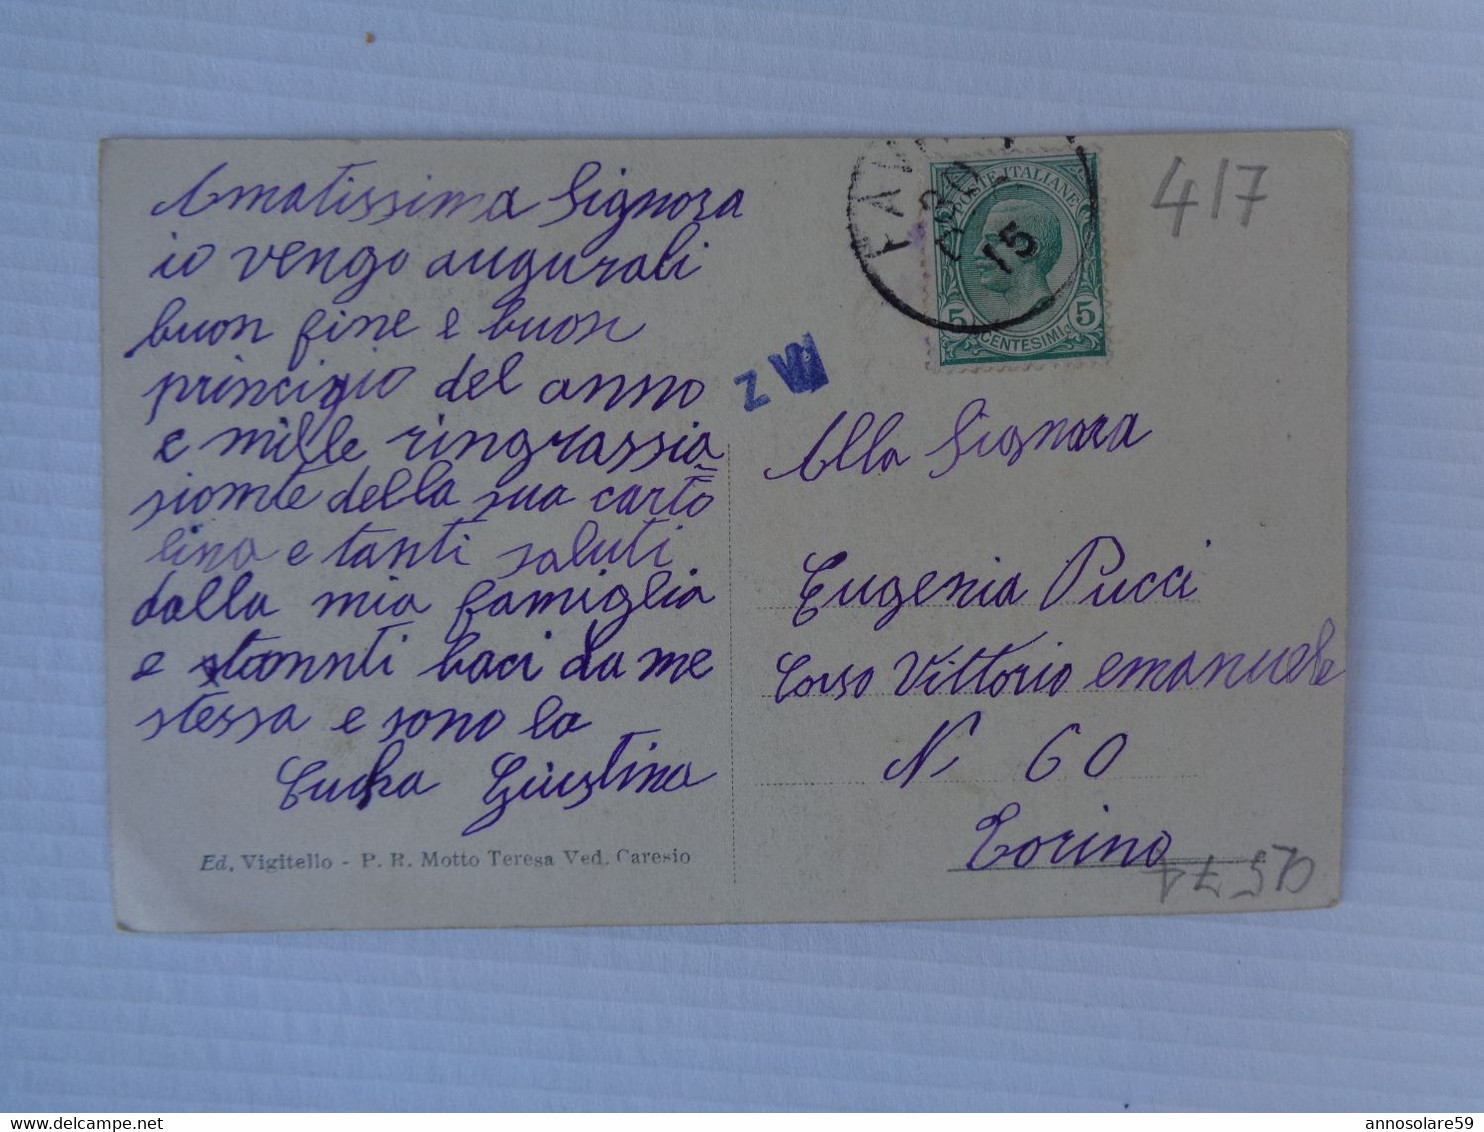 Amatissima Signora
io vengo augurali
buon fine e buon
principio del anno
e mille ringrassia
siomte della sua carto
lina e tanti saluti
dalla mia famiglia
e stannti baci da me
stessa e sono la
Giustina
Ed. Vigitello - P. R. Motto Teresa Ved. Caresio
FAV
15
POSTE ITALIANE
5 CENTESIMI 5
417
Z
Alla Signora
Eugenia Pucci
Corso Vittorio emanuele
N 60
Torino
annosolare59